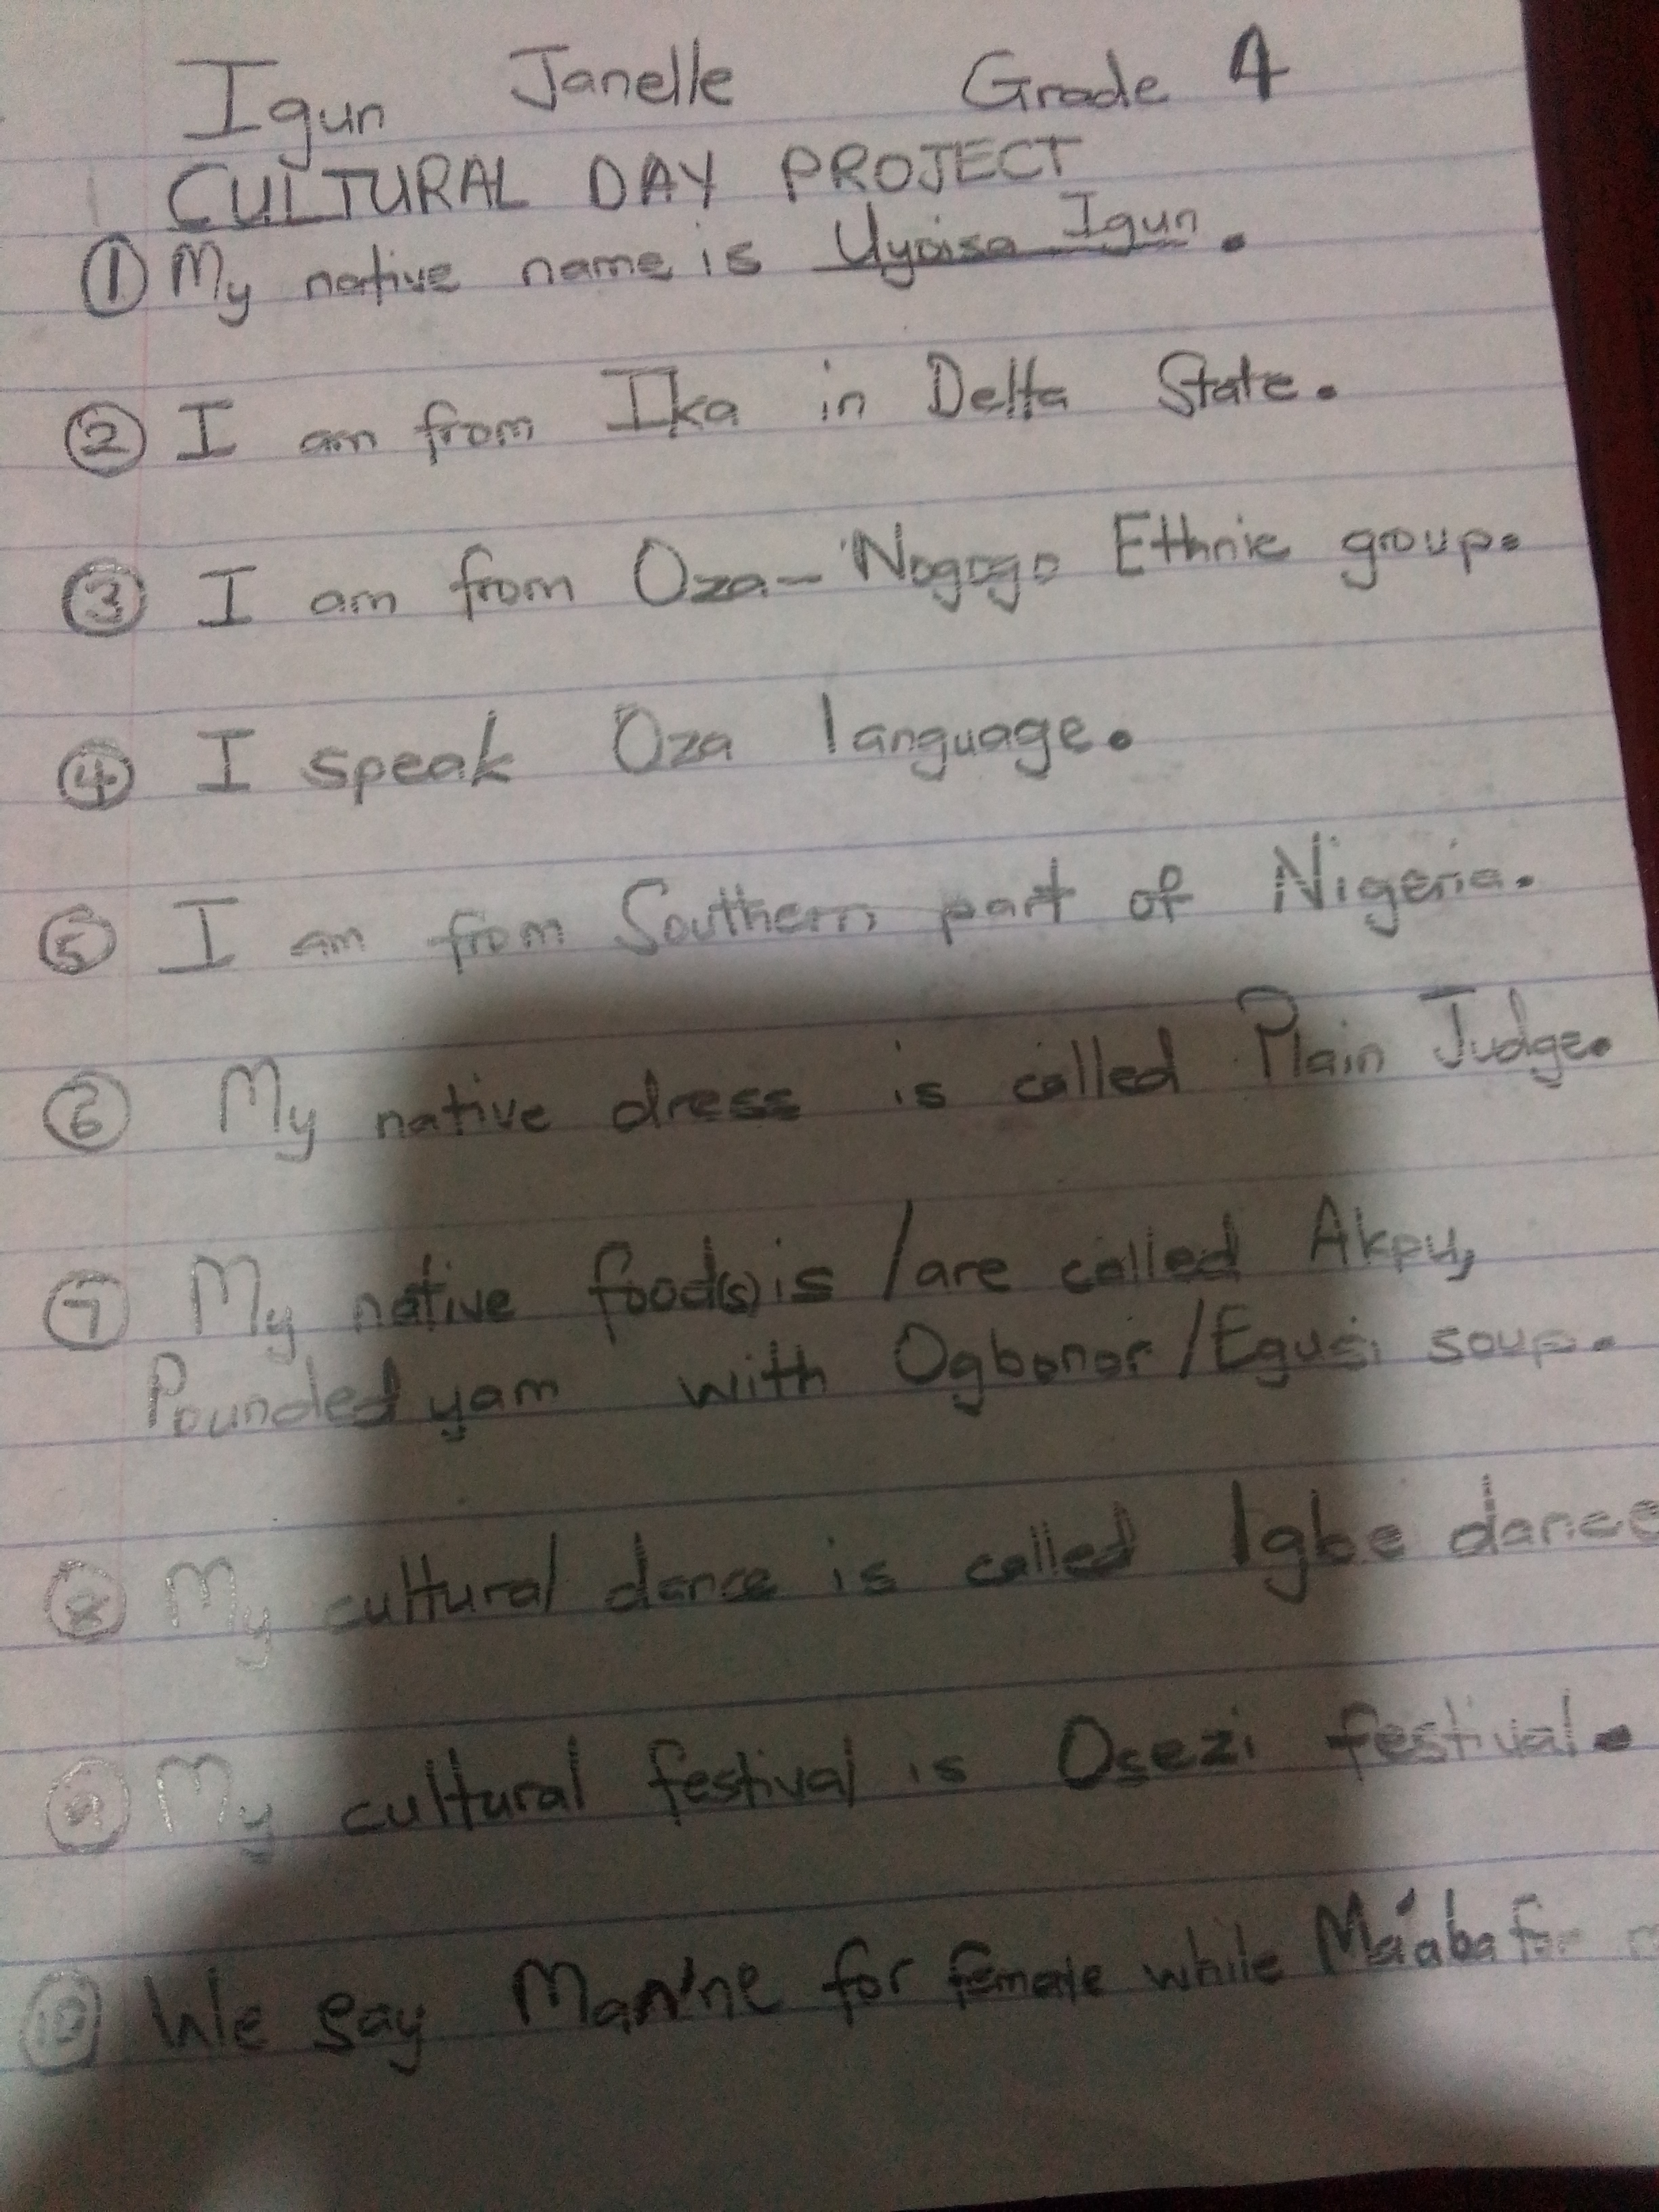 Igun Janelle Grade 4
CULTURAL DAY PROJECT
① My native name is Uyoisa Igun.
② I am from Ika in Delta State.
③ I am from Oza-Nogogo Ethnic group.
④ I speak Oza language.
⑤ I am from Southern part of Nigeria.
⑥ My native dress is called Plain Judge.
⑦ My native food(s) is /are called Akpu,
Pounded yam with Ogbonor/Egusi soup.
⑧ My cultural dance is called Igbe dance
⑨ My cultural festival is Osezi festival.
⑩ We say Man'ne for female while Ma'aba for